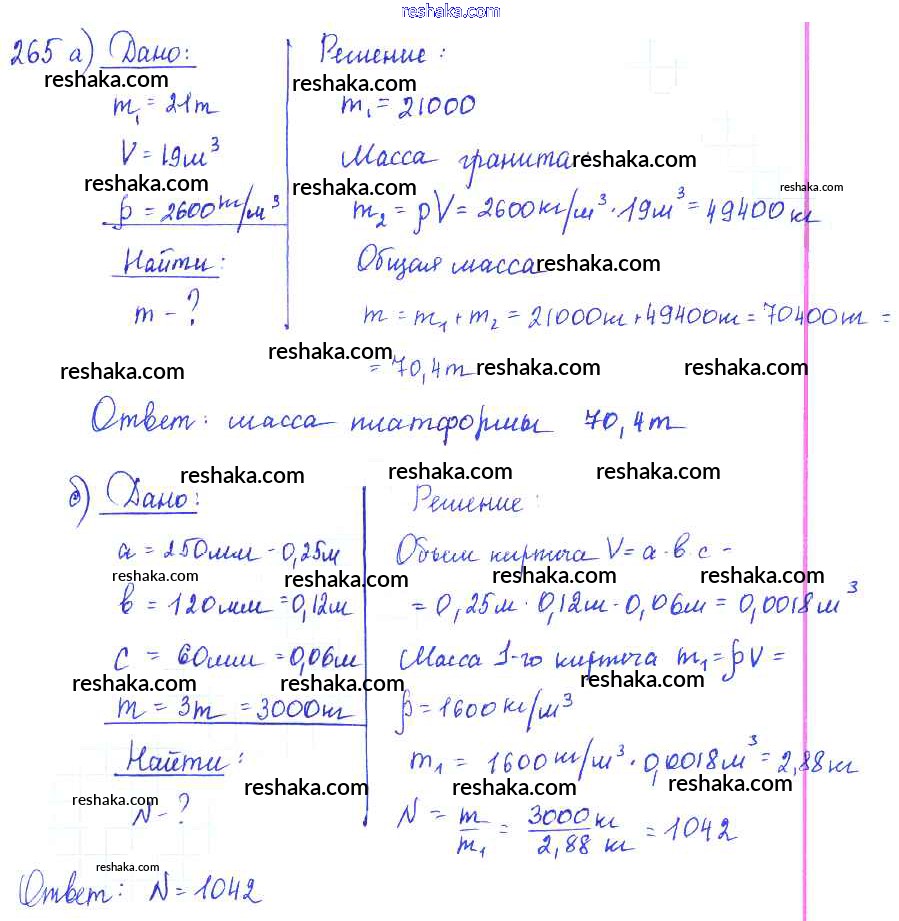 reshaka.com
265 а) Дано:
reshaka.com
m₁ = 21т
V = 19м³
reshaka.com
ρ = 2600кг/м³
Найти:
m - ?
Решение:
reshaka.com
m₁ = 21000
Масса гранита reshaka.com
reshaka.com reshaka.com
m₂ = ρV = 2600кг/м³ · 19м³ = 49400кг
Общая масса reshaka.com
m = m₁ + m₂ = 21000кг + 49400кг = 70400кг =
reshaka.com
= 70,4т reshaka.com reshaka.com
reshaka.com
Ответ: масса платформы 70,4т
reshaka.com reshaka.com reshaka.com
б) Дано:
a = 250мм - 0,25м
reshaka.com reshaka.com
в = 120мм = 0,12м
c = 60мм = 0,06м
reshaka.com reshaka.com
m = 3т = 3000кг
Найти:
reshaka.com
N - ?
Решение:
Объем кирпича V = a · в · c -
reshaka.com reshaka.com
= 0,25м · 0,12м · 0,06м = 0,0018м³
Масса 1-го кирпича m₁ = ρV =
reshaka.com
ρ = 1600кг/м³
m₁ = 1600кг/м³ · 0,0018м³ = 2,88кг
reshaka.com reshaka.com reshaka.com
N = m/m₁ = 3000кг/2,88 кг = 1042
reshaka.com
Ответ: N = 1042